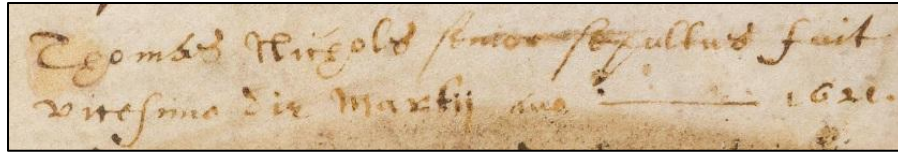 Thomas Nichols senior sepultus fuit
vicesimo die Martij ano 1621.